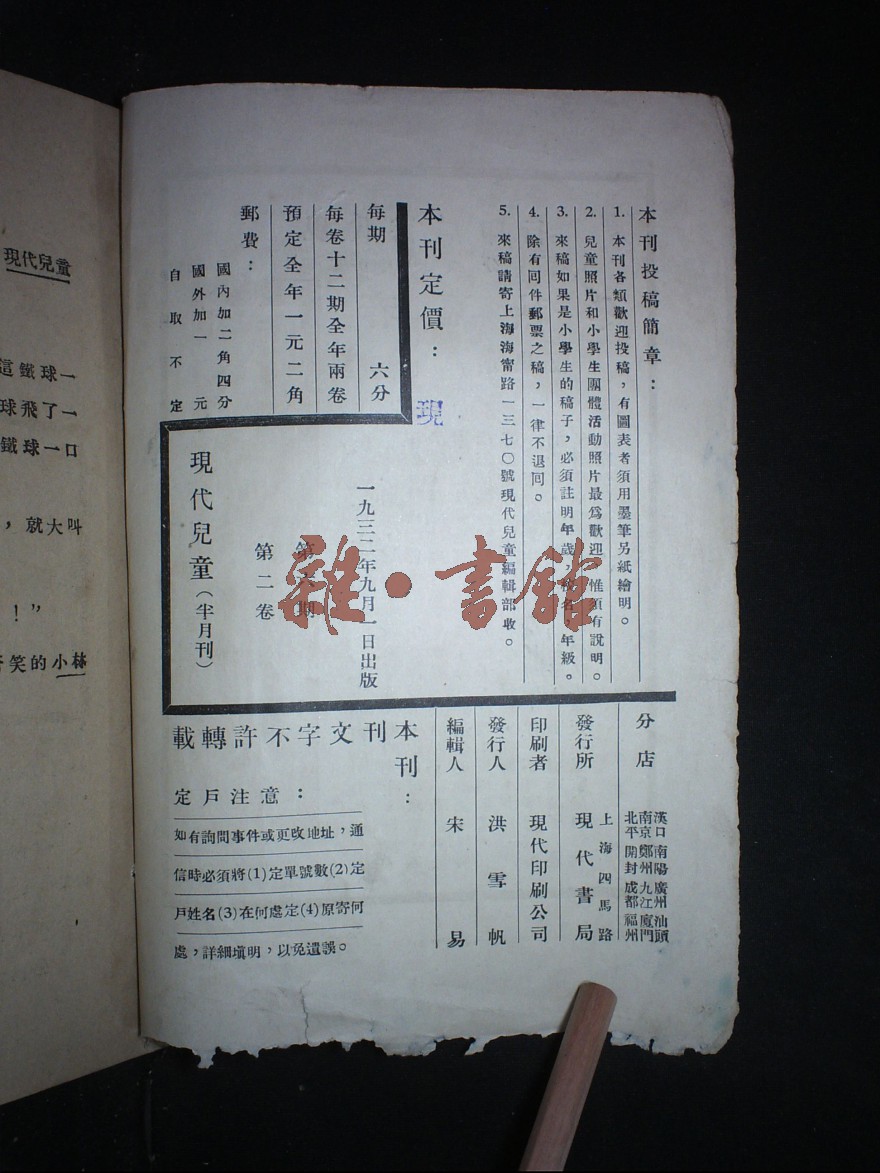 現代兒童
這鐵球一
球飛了一
鐵球一口
，就大叫
！”
笑的小林
本刊投稿簡章：
1. 本刊各類歡迎投稿，有圖表者須用墨筆另紙繪明。
2. 兒童照片和小學生團體活動照片最為歡迎，惟須有說明。
3. 來稿如果是小學生的稿子，必須註明年歲，校名，年級。
4. 除有回件郵票之稿，一律不退回。
5. 來稿請寄上海海甯路一三七〇號現代兒童編輯部收。
本刊定價：
現
每期 六分
每卷十二期全年兩卷
預定全年一元二角
郵費：
國內加二角四分
國外加一元
自取不定
一九三二年九月一日出版
第六期
第二卷
現代兒童（半月刊）
雜·書館
分店 漢口 南陽 廣州 汕頭
南京 鄭州 九江 廈門
北平 開封 成都 福州
發行所 上海四馬路
現代書局
印刷者 現代印刷公司
發行人 洪雪帆
編輯人 宋易
本刊：
本刊文字不許轉載
定戶注意：
如有詢問事件或更改地址，通
信時必須將(1)定單號數(2)定
戶姓名(3)在何處定(4)原寄何
處，詳細填明，以免遺誤。